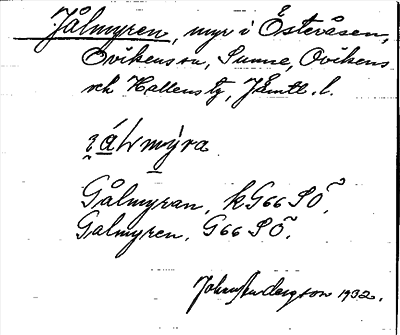 Jålmyren, myr i Österåsen,
Ovikens sn, Sunne, Ovikens
och Hallens tg, Jämtl. l.
myra
Gålmyran, kG66 SÖ.
Galmyren, G66 SÖ.
1932.